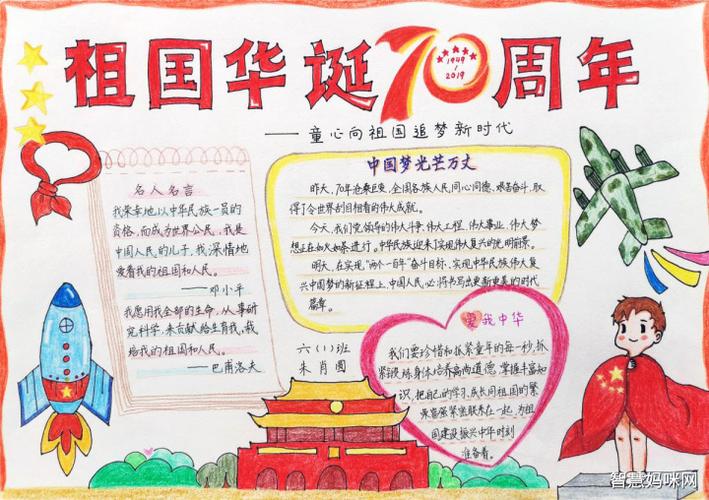 祖国华诞70周年
1949
2019
——童心向祖国追梦新时代
名人名言
我荣幸地以中华民族一员的
资格,而成为世界公民。我是
中国人民的儿子,我深情地
爱着我的祖国和人民。
——邓小平
我愿用我全部的生命,从事研
究科学,来贡献给生育我,栽
培我的祖国和人民。
——巴甫洛夫
中国梦光芒万丈
昨天,70年沧桑巨变,全国各族人民同心同德、艰苦奋斗,取
得了令世界刮目相看的伟大成就。
今天,我们党领导的伟大斗争、伟大工程、伟大事业、伟大梦
想正在如火如荼进行。中华民族迎来了实现伟大复兴的光明前景。
明天,在实现“两个一百年”奋斗目标、实现中华民族伟大复
兴中国梦的新征程上,中国人民必将书写出更新更美的时代
篇章。
六(1)班
朱肖圆
爱我中华
我们要珍惜和抓紧童年的每一秒,抓
紧锻炼身体培养高尚道德,掌握丰富知
识,把自己的学习、成长同祖国的繁
荣富强紧密联系在一起,为祖
国建设振兴中华时刻
准备着。
智慧妈咪网